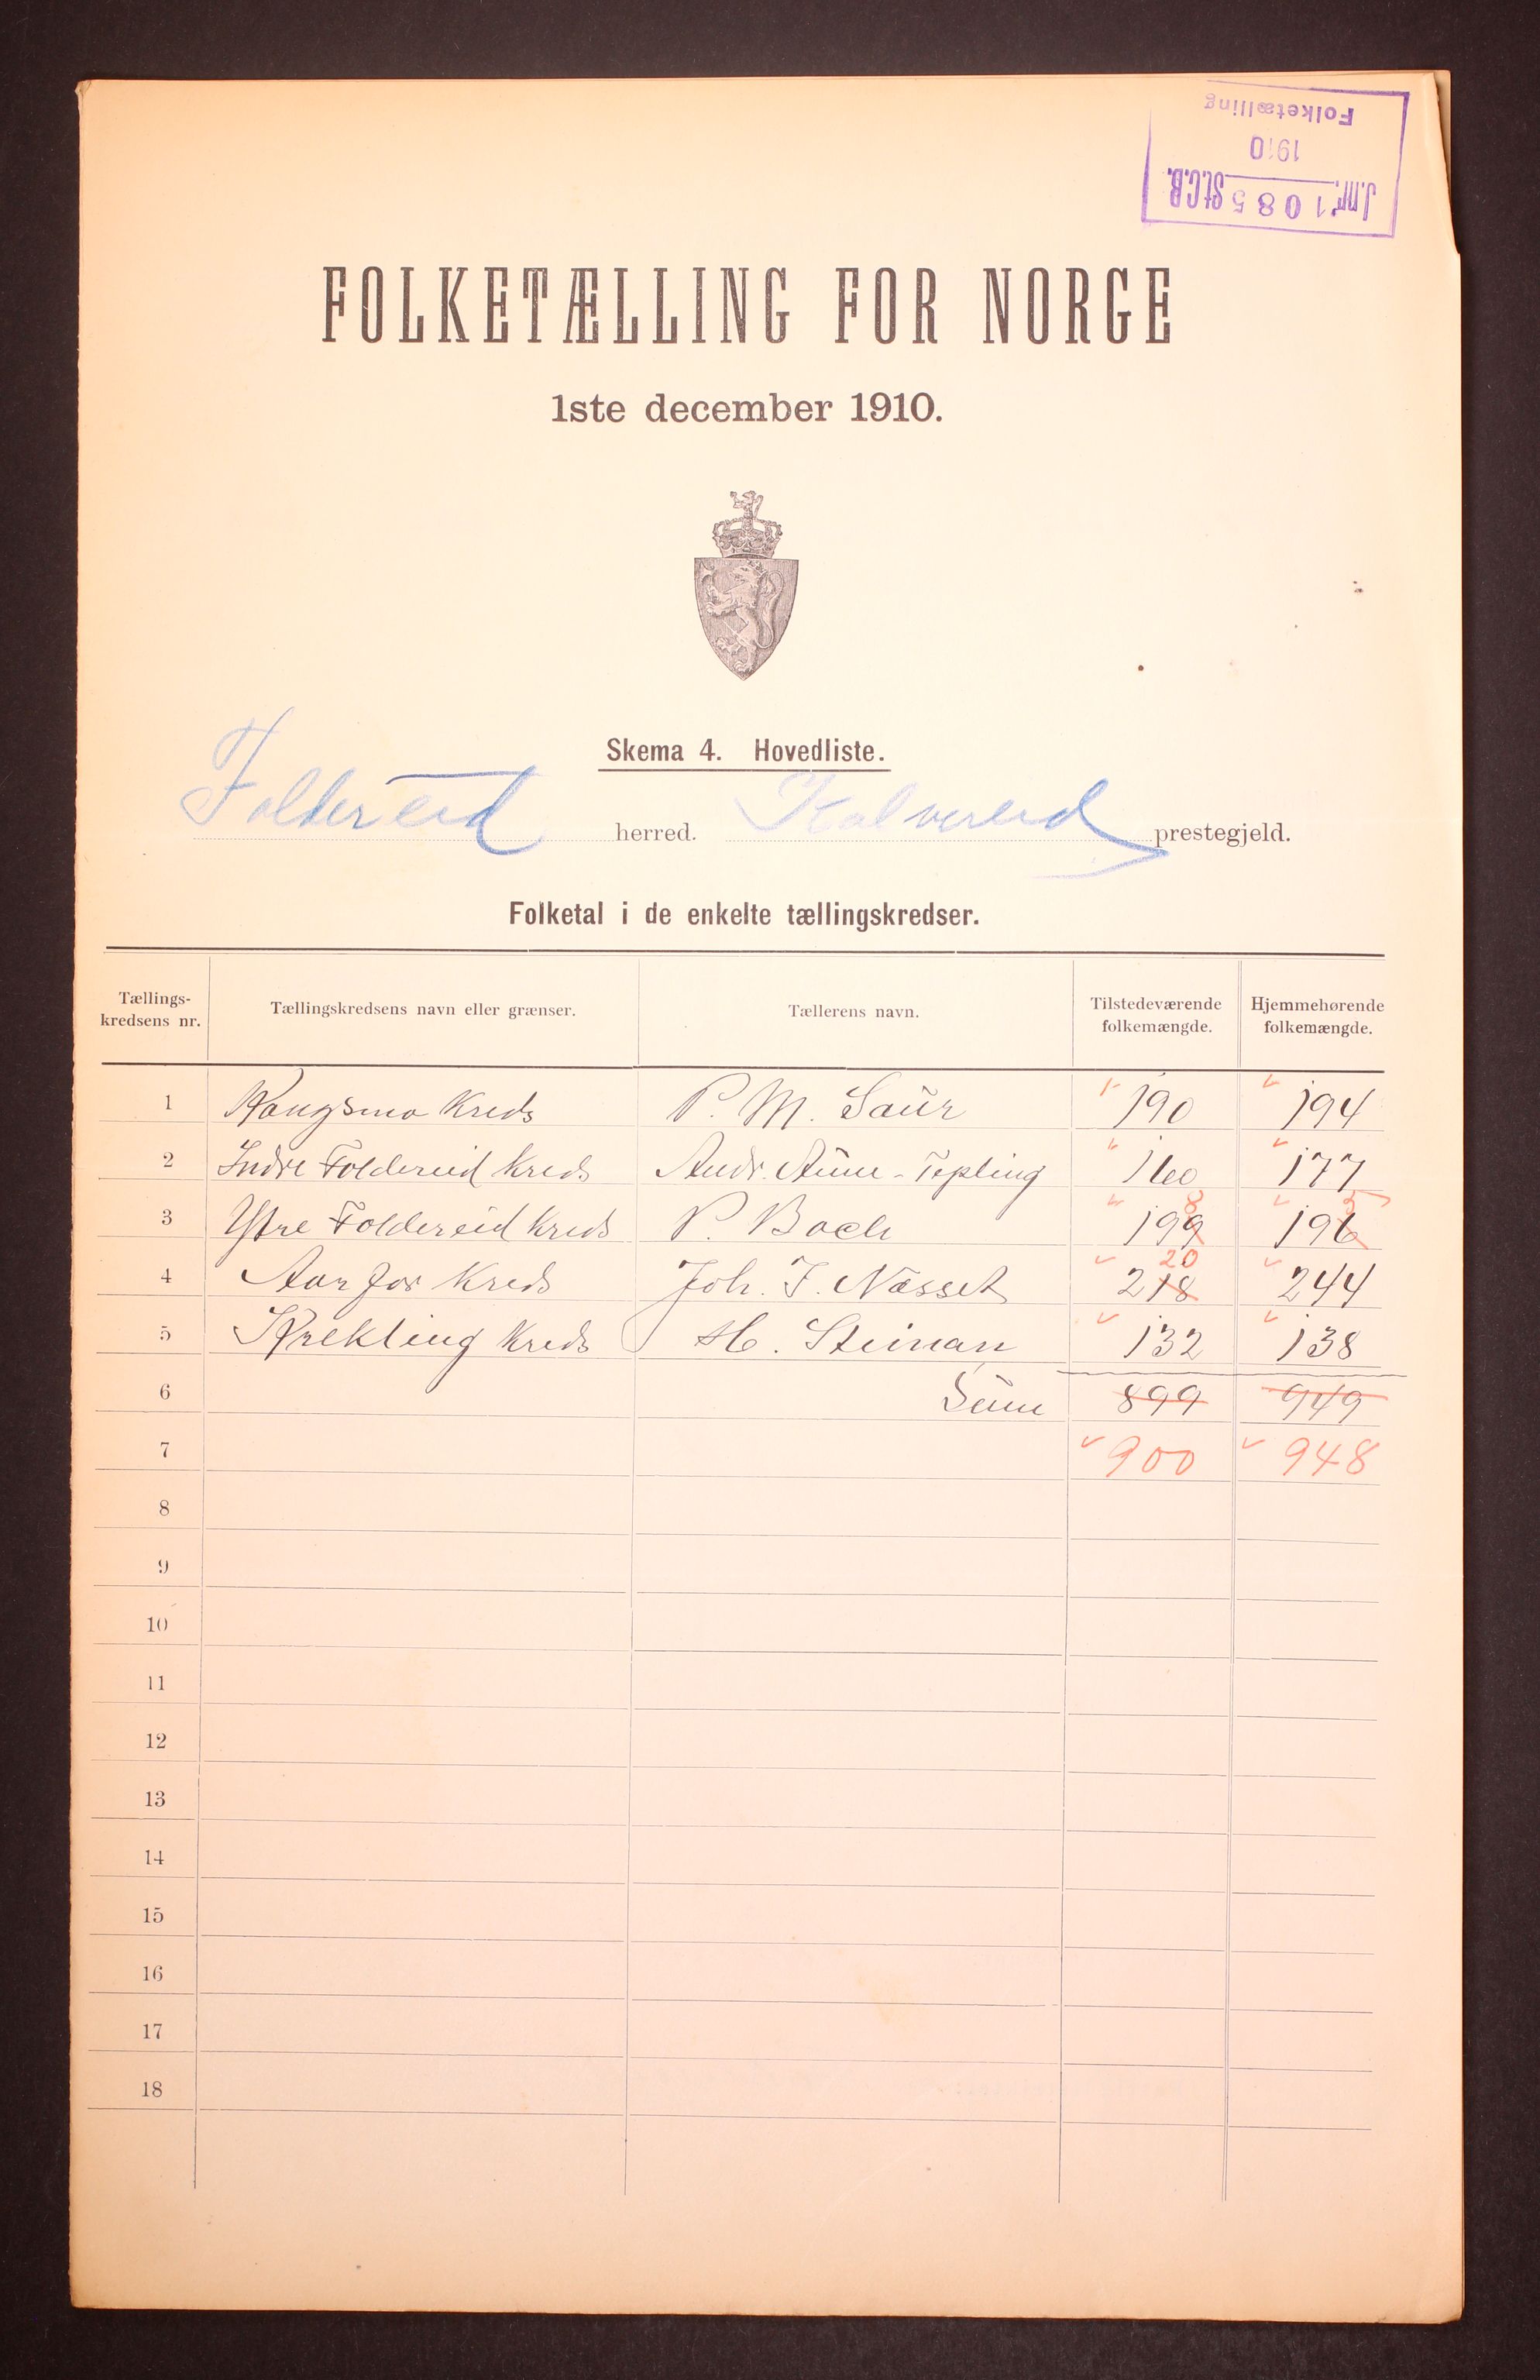 J.nr. 1085 St.C.B.
1910
Folketælling
FOLKETÆLLING FOR NORGE
1ste december 1910.
Skema 4. Hovedliste.
Foldereid herred. Kolvereid prestegjeld.
Folketal i de enkelte tællingskredser.
Tællings-kredsens nr. Tællingskredsens navn eller grænser. Tællerens navn. Tilstedeværende folkemængde. Hjemmehørende folkemængde.
1 Kongsmo Kreds P. M. Saur 190 194
2 Indre Foldereid Kreds Andr. Aune - Tepling 160 177
3 Ytre Foldereid Kreds P. Bach 199 8 196 5
4 Aarfor Kreds Joh. I. Næsset 218 20 244
5 Krekling Kreds H. Steinan 132 138
6 Sum 899 949
7 900 948
8
9
10
11
12
13
14
15
16
17
18